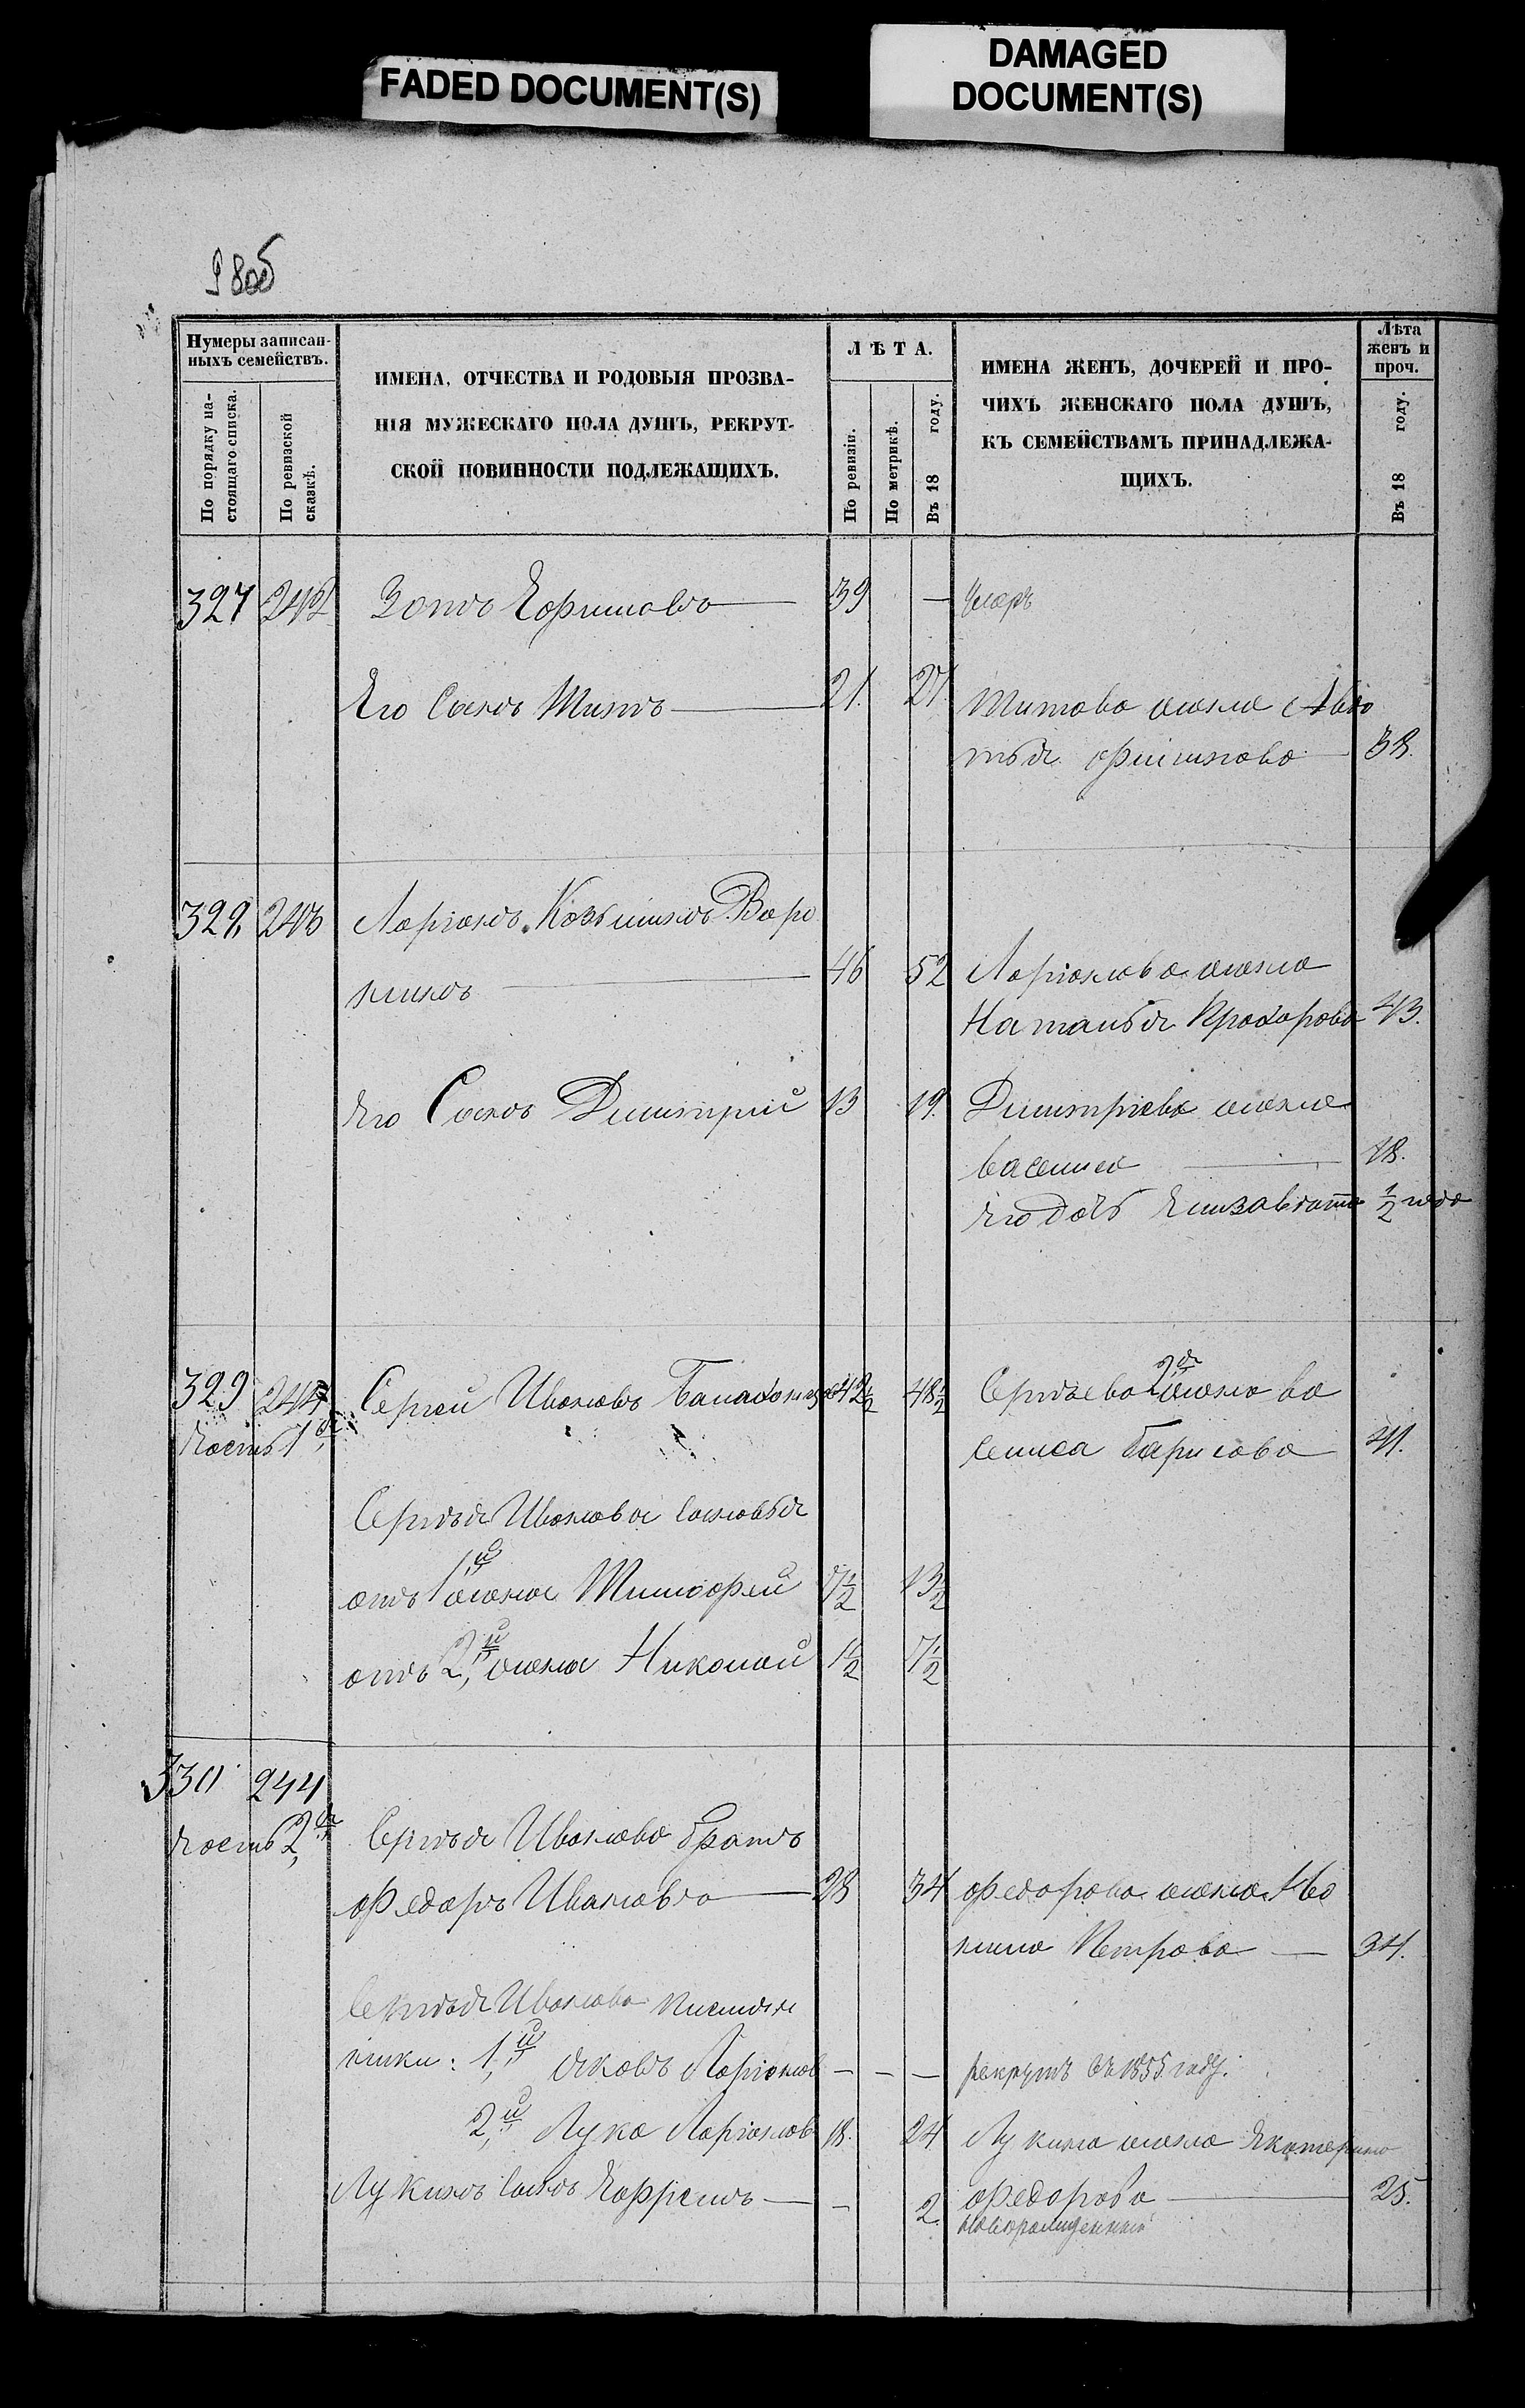 FADED DOCUMENT(S)
DAMAGED
DOCUMENT(S)
980об
Нумеры записан-
ныхъ семействъ.
По порядку на-
стоящаго списка.
По ревизской
сказкѣ.
ИМЕНА, ОТЧЕСТВА И РОДОВЫЯ ПРОЗВА-
НІЯ МУЖЕСКАГО ПОЛА ДУШЪ, РЕКРУТ-
СКОЙ ПОВИННОСТИ ПОДЛЕЖАЩИХЪ.
ЛѢТА.
По ревизіи.
По метрикѣ.
Въ 18 году.
ИМЕНА ЖЕНЪ, ДОЧЕРЕЙ И ПРО-
ЧИХЪ ЖЕНСКАГО ПОЛА ДУШЪ,
КЪ СЕМЕЙСТВАМЪ ПРИНАДЛЕЖА-
ЩИХЪ.
Лѣта
женъ и
проч.
Въ 18 году.
327 242 Зотъ Ефимовъ 39 — умеръ
Его Сынъ Титъ 21. 27. Титова жена Авдо
тья Ефимова 38.
328 243 Ларіонъ Козьминъ Вар
нинъ 46 52 Ларіонова жена
Наталья Прохорова 43.
Его Сынъ Димитрій 13 19. Димитріева жена
Василиса 18.
Его дочь Елизавета 1/2 года
329 244 Сергей Ивановъ 42 1/2 48 1/2 Сергѣева 2я жена Ва
часть 1я
силиса Барисова 41.
Сергѣя Иванова сыновья
отъ 1й жены Тимофей 7 1/2 13 1/2
отъ 2й жены Николай 1 1/2 7 1/2
330 244
часть 2я Сергѣя Иванова братъ
Федоръ Ивановъ 28 34 Федорова жена Аку
лина Петрова — 34.
Сергѣя Иванова племян
ники: 1й Яковъ Ларіонов — — — рекрутъ въ 1855 году.
2й Лука Ларіонов 18. 24 Лукина жена Екатерина
Лукинъ сынъ Ефремъ — — 2. Федорова 25.
новорожденный